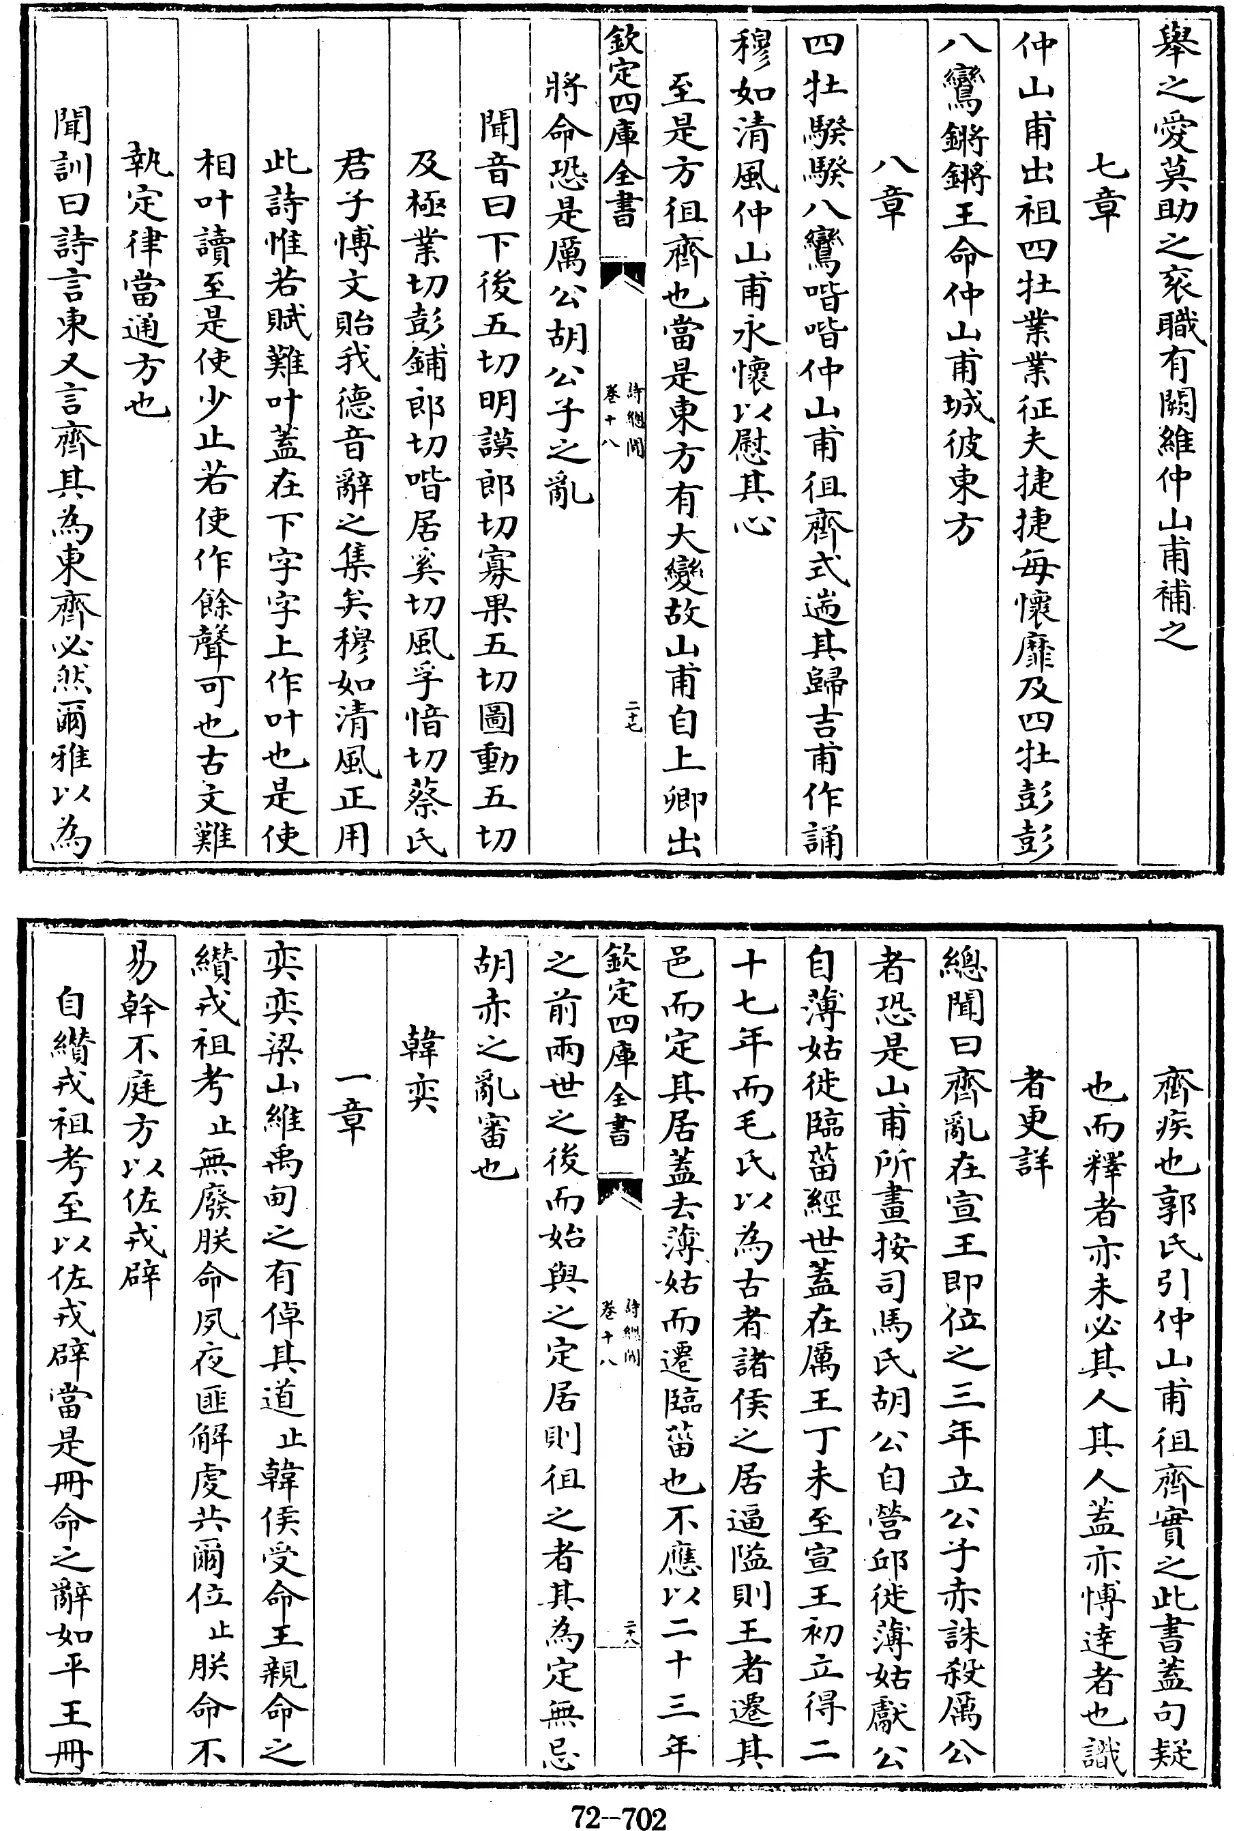 舉之愛莫助之衮職有闕維仲山甫補之
七章
仲山甫出祖四牡業業征夫捷捷每懷靡及四牡彭彭
八鸞鏘鏘王命仲山甫城彼東方
八章
四牡騤騤八鸞喈喈仲山甫徂齊式遄其歸吉甫作誦
穆如清風仲山甫永懷以慰其心
至是方徂齊也當是東方有大變故山甫自上卿出
欽定四庫全書
詩總聞
卷十八
二十七
將命恐是厲公胡公子之亂
聞音曰下後五切明謨郎切寡果五切圖動五切
及極業切彭鋪郎切喈居奚切風孚愔切蔡氏
君子慱文貽我德音辭之集矣穆如清風正用
此詩惟若賦難叶蓋在下字字上作叶也是使
相叶讀至是使少止若使作餘聲可也古文難
執定律當通方也
聞訓曰詩言東又言齊其為東齊必然爾雅以為
齊疾也郭氏引仲山甫徂齊實之此書蓋句疑
也而釋者亦未必其人其人蓋亦慱達者也識
者更詳
總聞曰齊亂在宣王即位之三年立公子赤誅殺厲公
者恐是山甫所畫按司馬氏胡公自營邱徙薄姑獻公
自薄姑徙臨菑經世蓋在厲王丁未至宣王初立得二
十七年而毛氏以為古者諸侯之居逼隘則王者遷其
邑而定其居蓋去薄姑而遷臨菑也不應以二十三年
欽定四庫全書
詩總聞
卷十八
二十八
之前兩世之後而始與之定居則徂之者其為定無忌
胡赤之亂審也
韓奕
一章
奕奕梁山維禹甸之有倬其道止韓侯受命王親命之
纘戎祖考止無廢朕命夙夜匪解虔共爾位止朕命不
易幹不庭方以佐戎辟
自纘戎祖考至以佐戎辟當是冊命之辭如平王冊
72--702